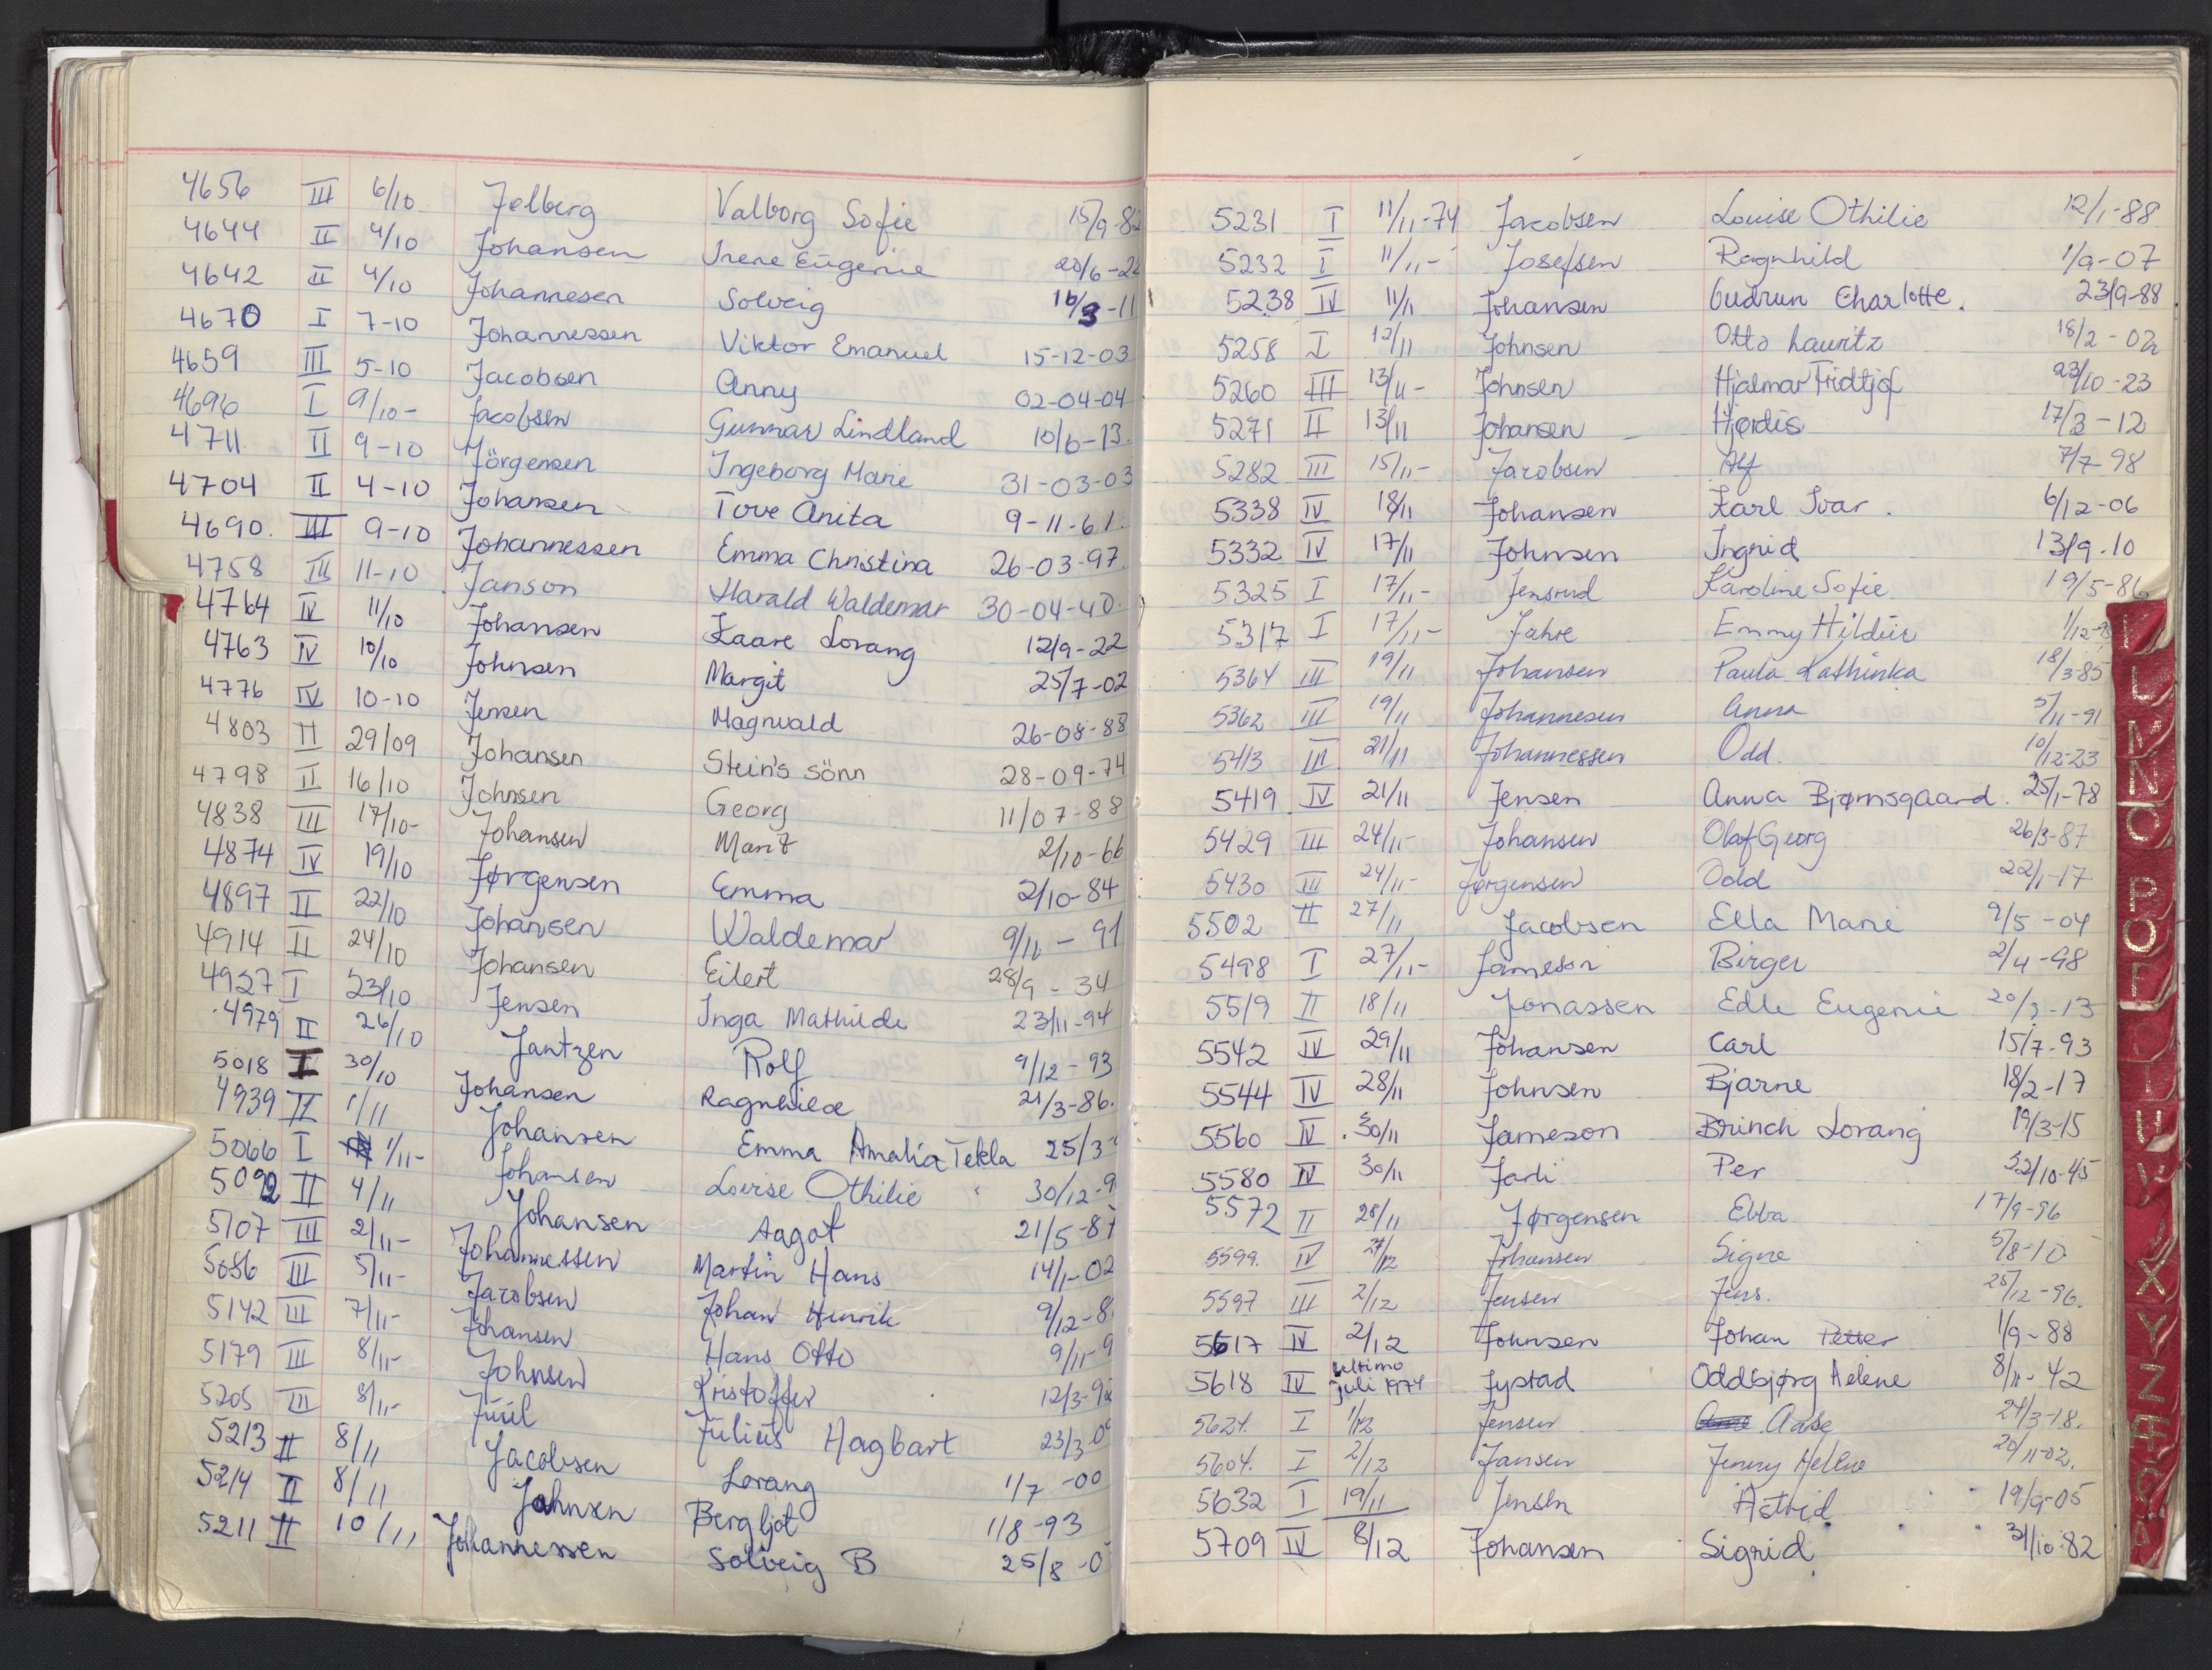 4656 III 6/10 Jelberg Valborg Sofie 15/9-82
4644 II 4/10 Johansen Irene Eugenie 20/6-22
4642 II 4/10 Johannesen Solveig 16/3-11
4670 I 7-10 Johannessen Viktor Emanuel 15-12-03
4659 III 5-10 Jacobsen Anny 02-04-04
4696 I 9/10- Jacobsen Gunnar Lindland 10/6-13.
4711 II 9-10 Jörgensen Ingeborg Marie 31-03-03
4704 II 4-10 Johansen Tove Anita 9-11-61.
4690. III 9-10 Johannessen Emma Christina 26-03-97.
4758 III 11-10 Janson Harald Waldemar 30-04-40.
4764 IV 11/10 Johansen Kaare Lorang 12/9-22
4763 IV 10/10 Johnsen Margit 25/7-02
4776 IV 10-10 Jensen Magnvald 26-08-88
4803 II 29/09 Johansen Stein's sönn 28-09-74
4798 II 16/10 Johnsen Georg 11/07-88
4838 III 17/10- Johansen Marit 2/10-66
4874 IV 19/10 Jørgensen Emma 2/10-84
4897 II 22/10 Johansen Waldemar 9/11-91
4914 II 24/10 Johansen Eilert 28/9-34
4927 I 23/10 Jensen Inga Mathilde 23/11-94
4979 II 26/10 Jantzen Rolf 9/12-93
5018 I 30/10 Johansen Ragnhild 21/3-86.
4939 II 1/11 Johansen Emma Amalia Tekla 25/3-
5066 I 1/11- Johansen Louise Othilie 30/12-9
5092 II 4/11 Johansen Aagot 21/5-87
5107 III 2/11- Johannessen Martin Hans 14/1-02
5086 III 5/11- Jacobsen Johan Henrik 9/12-8
5142 III 7/11- Johansen Hans Otto 9/11-9
5179 III 8/11- Johnsen Kristoffer 12/3-92
5205 III 8/11- Juul Julius Hagbart 23/3-0
5213 II 8/11 Jacobsen Lorang 1/7-00
5214 II 8/11 Johnsen Bergljot 1/8-93
5211 II 10/11 Johannessen Solveig B 25/8-0
5231 I 11/11-74 Jacobsen Louise Othilie 12/1-88
5232 I 11/11- Josefsen Ragnhild 1/9-07
5238 IV 11/11 Johansen Gudrun Charlotte. 23/9-88
5258 I 12/11 Johnsen Otto Lauritz 18/2-02
5260 III 13/11- Johnsen Hjalmar Fridtjof 23/10-23
5271 II 13/11 Johansen Hjørdis 17/3-12
5282 III 15/11- Jacobsen Alf 7/7-98
5338 IV 18/11 Johansen Karl Ivar. 6/12-06
5332 IV 17/11 Johnsen Ingrid 13/9-10
5325 I 17/11- Jensrud Karoline Sofie. 19/5-86
5317 I 17/11- Jahre Emmy Hildur 1/12-9
5364 III 19/11 Johansen Paula Kathinka 18/3-85
5362 III 19/11 Johannesen Anna 5/11-91
5413 III 21/11 Johannessen Odd. 10/12-23
5419 IV 21/11 Jensen Anna Bjørnsgaard. 25/1-78
5429 III 24/11- Johansen Olaf Georg 26/3-87
5430 III 24/11- Jørgensen Odd 22/1-17
5502 II 27/11 Jacobsen Ella Marie 9/5-04
5498 I 27/11- Jameson Birger 2/4-98
5519 II 18/11 Jonassen Edle Eugenie 20/3-13
5542 IV 29/11 Johansen Carl 15/7-93
5544 IV 28/11 Johnsen Bjarne 18/2-17
5560 IV 30/11 Jameson Brinch Lorang 19/3-15
5580 IV 30/11 Jarli Per 22/10-45
5572 II 28/11 Jørgensen Ebba 17/9-96
5599. IV Johansen Signe 5/8-10
5597 III 2/12 Jensen Jens. 25/12-96.
5617 IV 2/12 Johnsen Johan Petter 1/9-88
5618 IV ultimo juli 1974 Jystad Oddbjørg Helene 8/11-42
5624. I 1/12 Jensen Aase 24/3-18.
5604. I 2/12 Jansen Jenny Helene 20/11-02.
5632 I 19/11 Jensen Astrid 19/9-05
5709 IV 8/12 Johansen Sigrid 31/10-82
L
M
N
O
P
Q
X
Y
Z